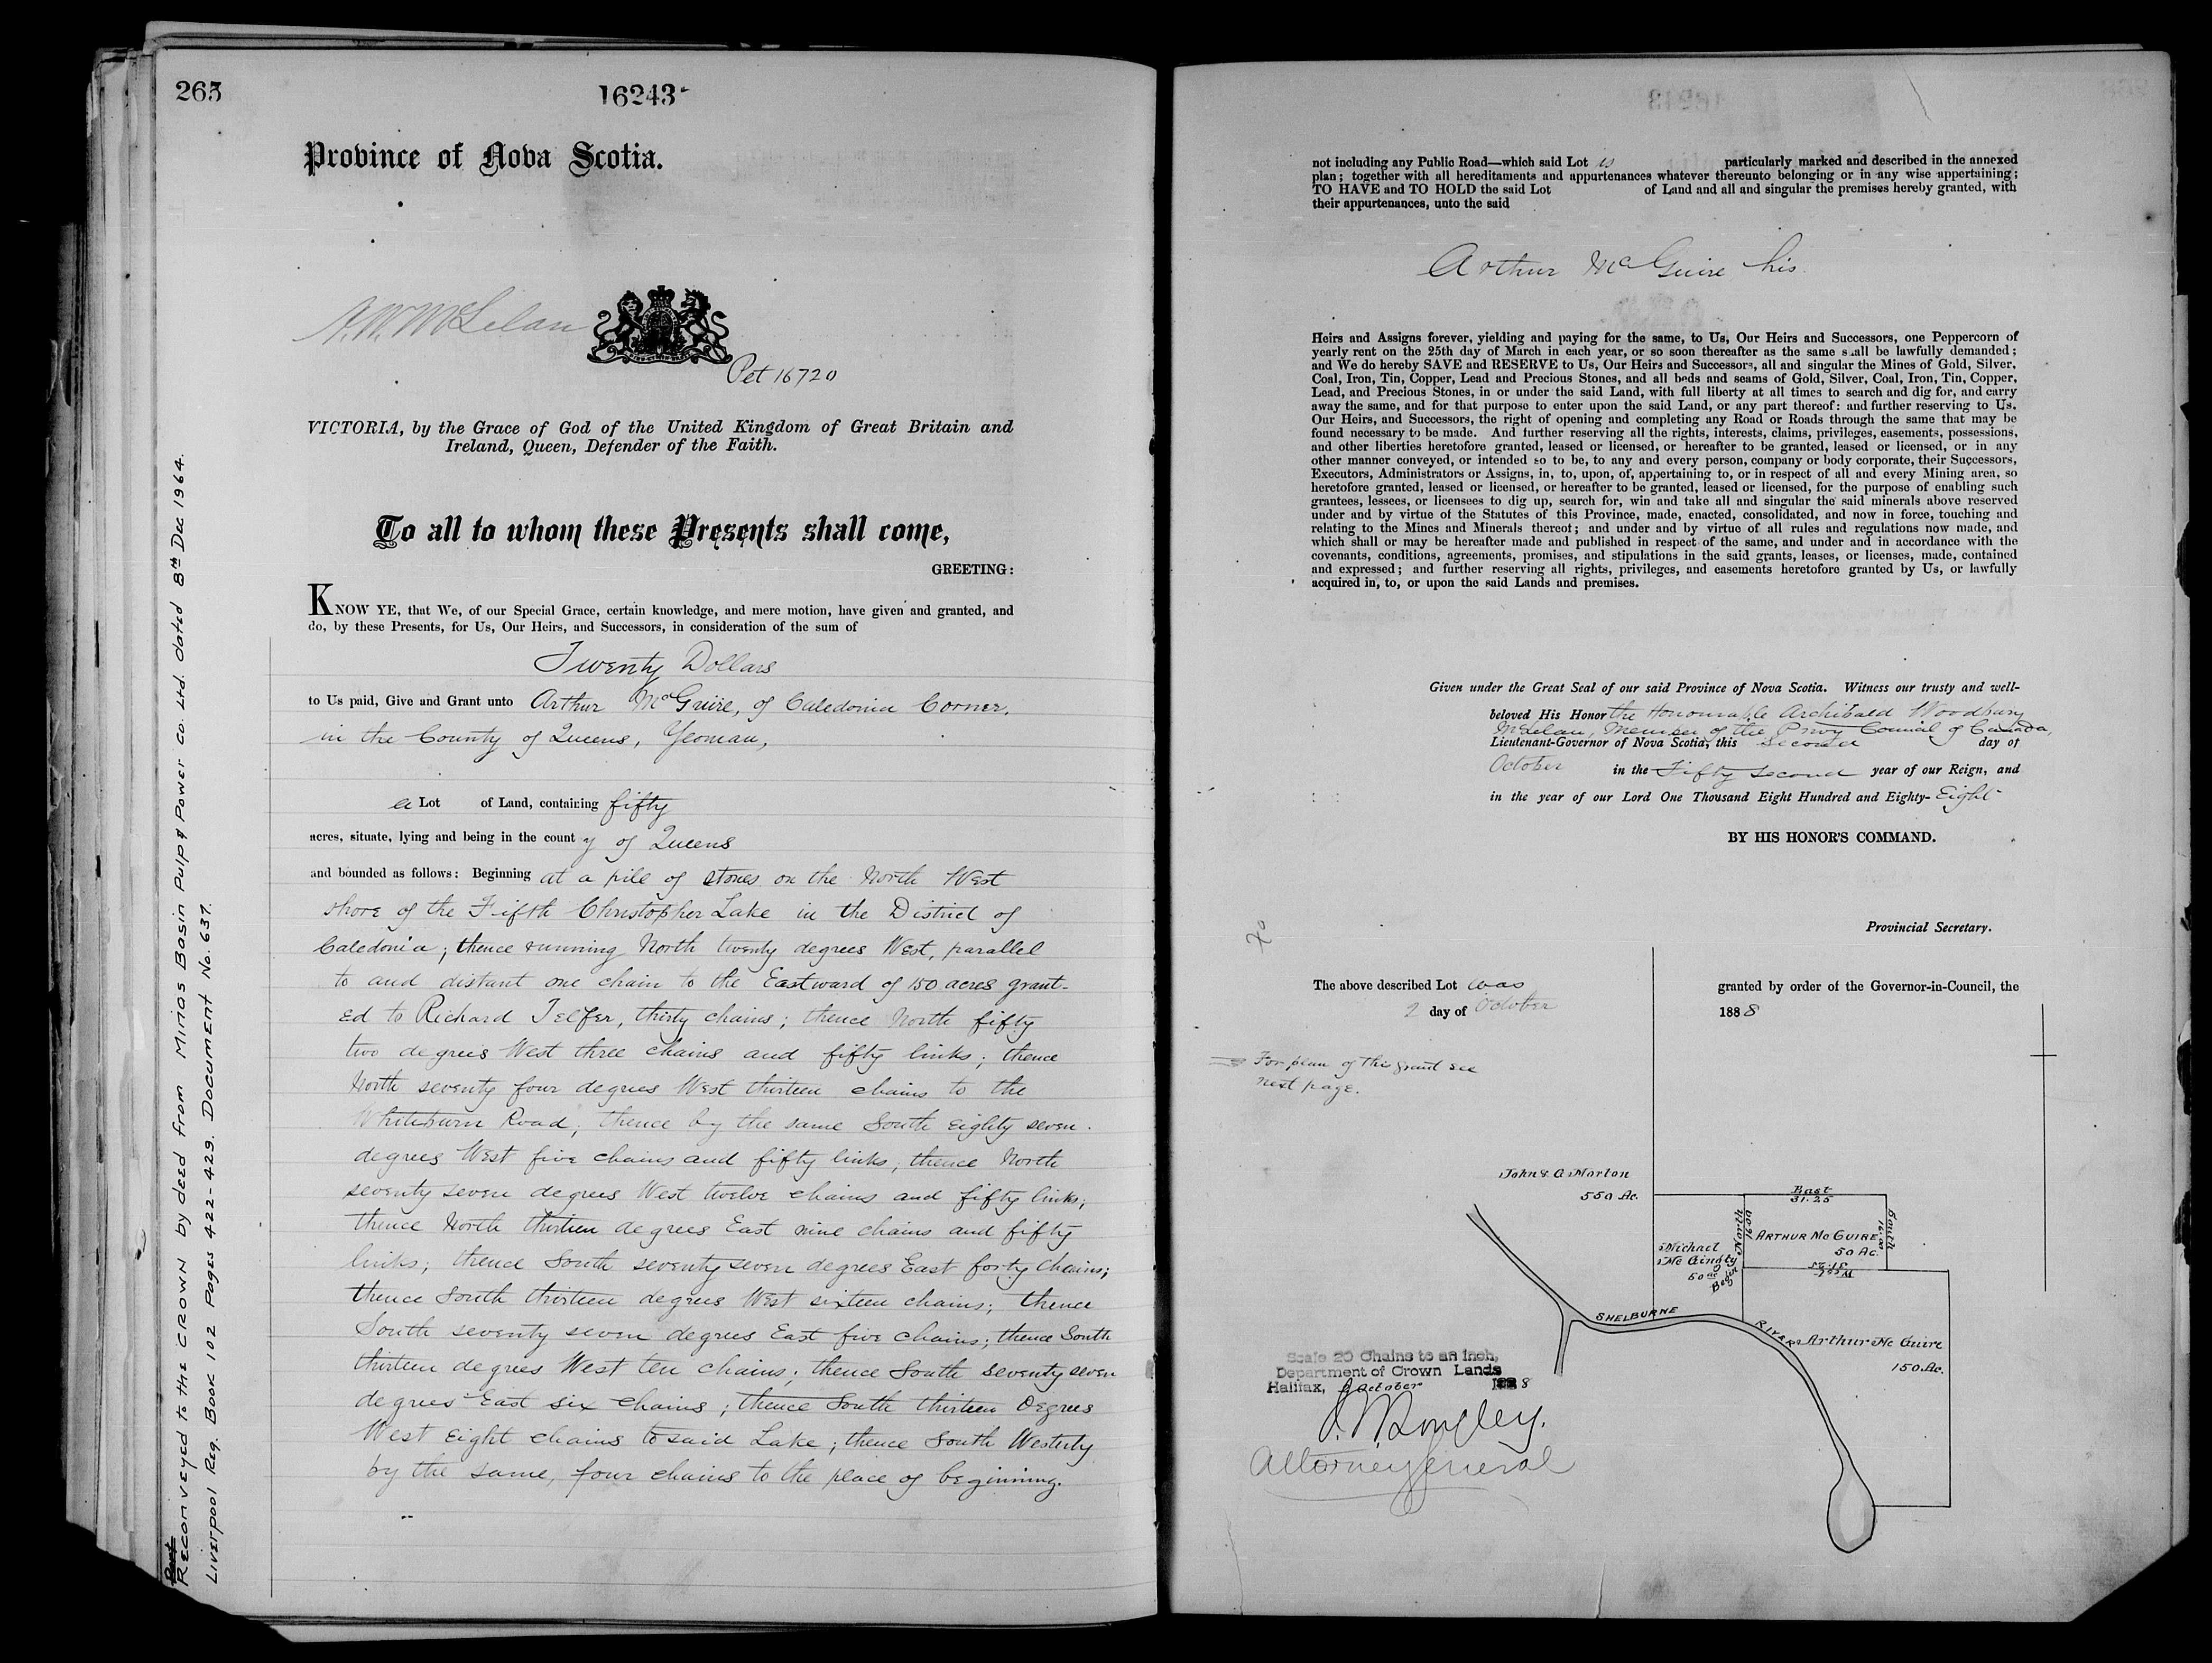 265
16243
Province of Nova Scotia.
A. W. McLelan
Pet 16720
VICTORIA, by the Grace of God of the United Kingdom of Great Britain and
Ireland, Queen, Defender of the Faith.
To all to whom these Presents shall come,
GREETING:
KNOW YE, that We, of our Special Grace, certain knowledge, and mere motion, have given and granted, and
do, by these Presents, for Us, Our Heirs, and Successors, in consideration of the sum of
Twenty Dollars
to Us paid, Give and Grant unto Arthur McGuire, of Caledonia Corner,
in the County of Queens, Yeoman,
a Lot of Land, containing fifty
acres, situate, lying and being in the county of Queens
and bounded as follows: Beginning at a pile of stones on the North West
shore of the Fifth Christopher Lake in the District of
Caledonia; thence running North twenty degrees West, parallel
to and distant one chain to the Eastward of 150 acres grant-
ed to Richard Telfer, thirty chains; thence North fifty
two degrees West three chains and fifty links; thence
North seventy four degrees West thirteen chains to the
Whiteburn Road; thence by the same South eighty seven
degrees West five chains and fifty links; thence North
seventy seven degrees West twelve chains and fifty links;
thence North thirteen degrees East nine chains and fifty
links; thence South seventy seven degrees East forty chains;
thence South thirteen degrees West sixteen chains; thence
South seventy seven degrees East five chains; thence South
thirteen degrees West ten chains; thence South seventy seven
degrees East six chains; thence South thirteen Degrees
West eight chains to said Lake; thence South Westerly
by the same, four chains to the place of beginning.
Reconveyed to the CROWN by deed from Minas Basin Pulp & Power co. Ltd. dated 8th Dec 1964.
Liverpool Reg. Book 102 Pages 422-423. Document No. 637.
not including any Public Road—which said Lot is particularly marked and described in the annexed
plan; together with all hereditaments and appurtenances whatever thereunto belonging or in any wise appertaining;
TO HAVE and TO HOLD the said Lot of Land and all and singular the premises hereby granted, with
their appurtenances, unto the said
Arthur McGuire his
Heirs and Assigns forever, yielding and paying for the same, to Us, Our Heirs and Successors, one Peppercorn of
yearly rent on the 25th day of March in each year, or so soon thereafter as the same shall be lawfully demanded;
and We do hereby SAVE and RESERVE to Us, Our Heirs and Successors, all and singular the Mines of Gold, Silver,
Coal, Iron, Tin, Copper, Lead and Precious Stones, and all beds and seams of Gold, Silver, Coal, Iron, Tin, Copper,
Lead, and Precious Stones, in or under the said Land, with full liberty at all times to search and dig for, and carry
away the same, and for that purpose to enter upon the said Land, or any part thereof: and further reserving to Us,
Our Heirs, and Successors, the right of opening and completing any Road or Roads through the same that may be
found necessary to be made. And further reserving all the rights, interests, claims, privileges, easements, possessions,
and other liberties heretofore granted, leased or licensed, or hereafter to be granted, leased or licensed, or in any
other manner conveyed, or intended so to be, to any and every person, company or body corporate, their Successors,
Executors, Administrators or Assigns, in, to, upon, of, appertaining to, or in respect of all and every Mining area, so
heretofore granted, leased or licensed, or hereafter to be granted, leased or licensed, for the purpose of enabling such
grantees, lessees, or licensees to dig up, search for, win and take all and singular the said minerals above reserved
under and by virtue of the Statutes of this Province, made, enacted, consolidated, and now in force, touching and
relating to the Mines and Minerals thereof; and under and by virtue of all rules and regulations now made, and
which shall or may be hereafter made and published in respect of the same, and under and in accordance with the
covenants, conditions, agreements, promises, and stipulations in the said grants, leases, or licenses, made, contained
and expressed; and further reserving all rights, privileges, and easements heretofore granted by Us, or lawfully
acquired in, to, or upon the said Lands and premises.
Given under the Great Seal of our said Province of Nova Scotia. Witness our trusty and well-
beloved His Honor the Honourable Archibald Woodbury
McLelan, Member of the Privy Council of Canada,
Lieutenant-Governor of Nova Scotia, this second day of
October in the Fifty second year of our Reign, and
in the year of our Lord One Thousand Eight Hundred and Eighty-Eight
BY HIS HONOR'S COMMAND.
Provincial Secretary.
The above described Lot was granted by order of the Governor-in-Council, the
2 day of October 1888
For plan of this grant see
next page.
John & G Morton
550 Ac.
East
31.25
North
16.00
South
16.00
ARTHUR McGUIRE
50 Ac.
West
31.25
Michael
McGinty
50 ac
Begin
SHELBURNE RIVER
Arthur McGuire
150 Ac.
Scale 20 Chains to an Inch,
Department of Crown Lands
Halifax, 2 October 1888
J. W. Longley.
Attorney General